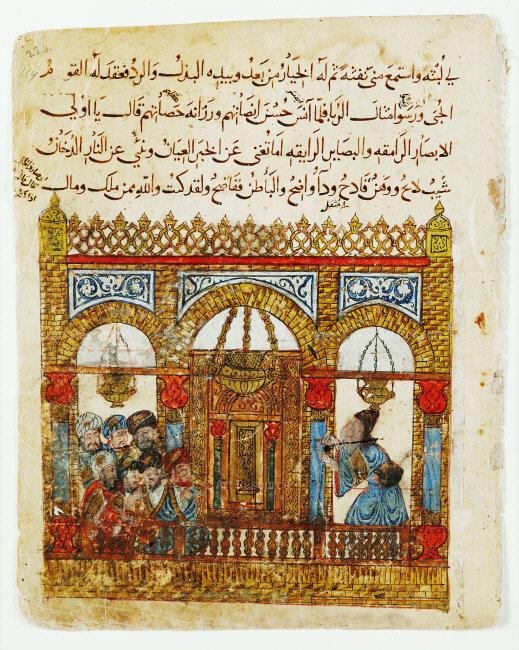 في لبثه واستمع مني نفثه ثم له الخيار من بعد وبيده البذل والرد فعقد له القوم
الحبى ورسوا امثال الربا فلما آنس حسن انصاتهم ورزانة حصاتهم قال يا اولي
الابصار الرامقه والبصاير الرايقه اما تغني عن الخبر العيان وتنبي عن النار الدخان
شيب لاح ووهن فادح ودآ واضح والباطن ففاضح ولقد كنت والله ممن ملك ومال